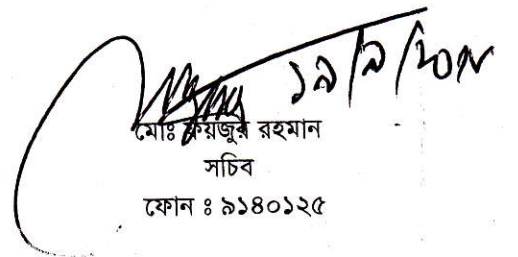 ১৯/৯/২০১৮
মোঃ ফয়জুর রহমান
সচিব
ফোন ঃ ৯১৪০১২৫